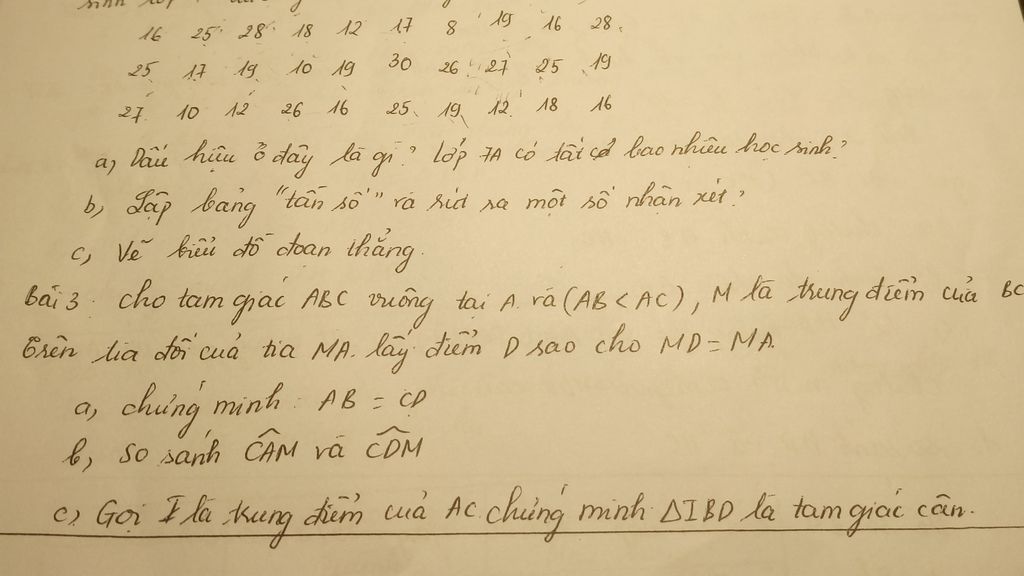 sinh lớp
16 25 28 18 12 17 8 19 16 28
25 17 19 10 19 30 26 27 25 19
27 10 12 26 16 25 19 12 18 16
a, Dấu hiệu ở đây là gì? Lớp 7A có tất cả bao nhiêu học sinh?
b, Lập bảng "tần số" và rút ra một số nhận xét?
c, Vẽ biểu đồ đoạn thẳng.
Bài 3. Cho tam giác ABC vuông tại A. và (AB < AC), M là trung điểm của BC
trên tia đối của tia MA. lấy điểm D sao cho MD = MA.
a, chứng minh: AB = CD
b, So sánh \widehat{CAM} và \widehat{CDM}
c, Gọi I là trung điểm của AC chứng minh ΔIBD là tam giác cân.